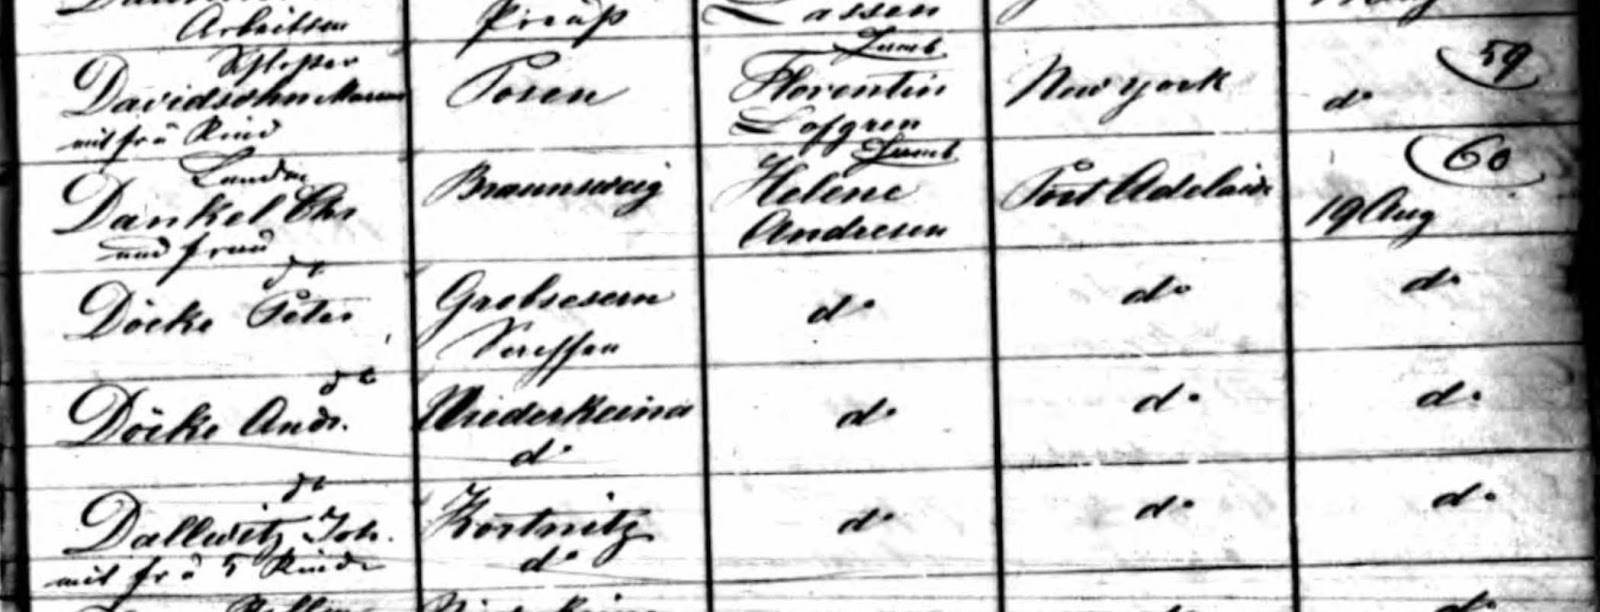 Arbeitsm
Preuß
Lassen
Schlosser
Davidsohn Marcus
mit fr u Kind
Posen
Zumb
Florentin
Lofgren
New York
do
59
Landm
Dankel Chr
und frau
Braunsweig
Zumb
Helene
Andresen
Port Adelaide
19 Aug
60
do
Döcke Peter
do
do
do
do
Döcke Andr.
Niederkaina
do
do
do
do
do
Dallwitz Joh.
mit fr u 5 Kinder
do
do
do
do